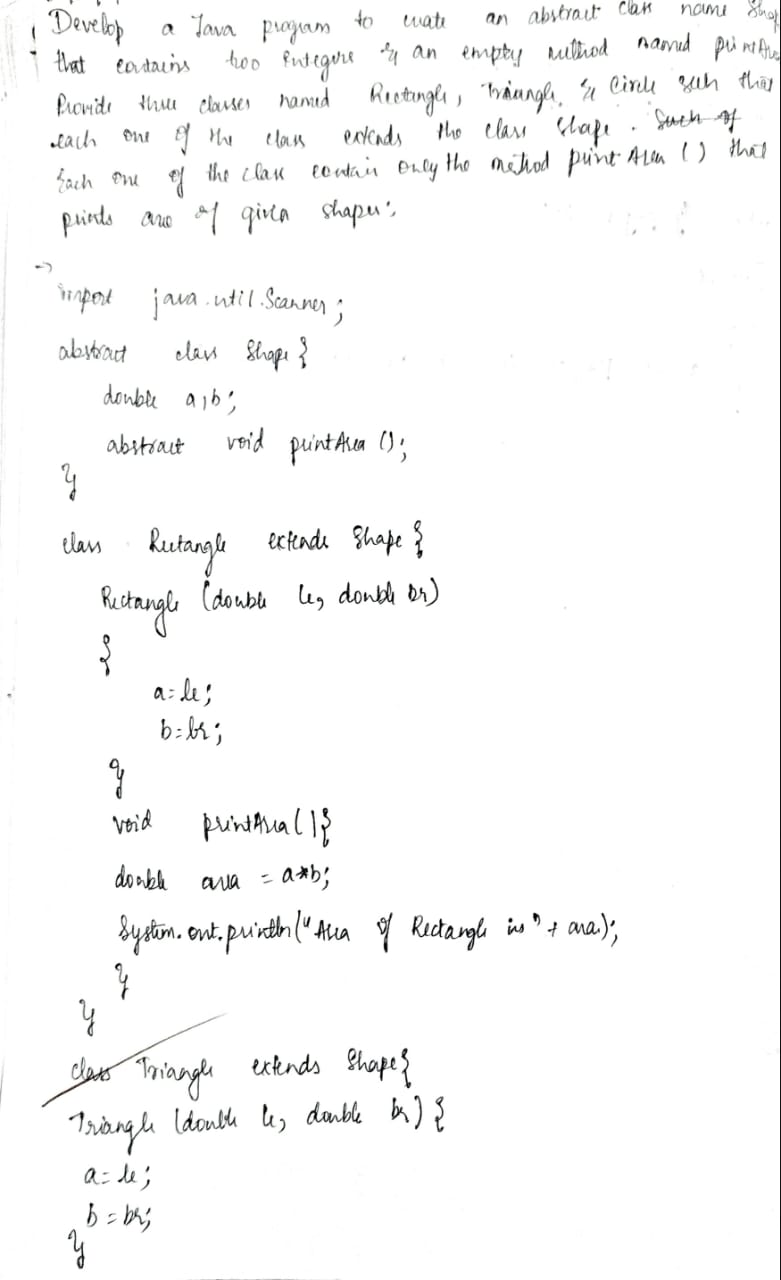 Develop a Java program to create an abstract class name Shap
that contains two integers & an empty method named printArea
Provide three classes named Rectangle, Triangle, & Circle such that
each one of the class extends the class Shape. Such of
Each one of the class contain only the method print Area () that
prints area of given shapes;
->
import java.util.Scanner;
abstract class Shape {
double a,b;
abstract void printArea ();
}
class Rectangle extends Shape {
Rectangle (double le, double br)
{
a=le;
b=br;
}
void printArea(){
double area = a*b;
System.out.println("Area of Rectangle is" + area);
}
}
class Triangle extends Shape{
Triangle (double le, double br) {
a=le;
b=br;
}